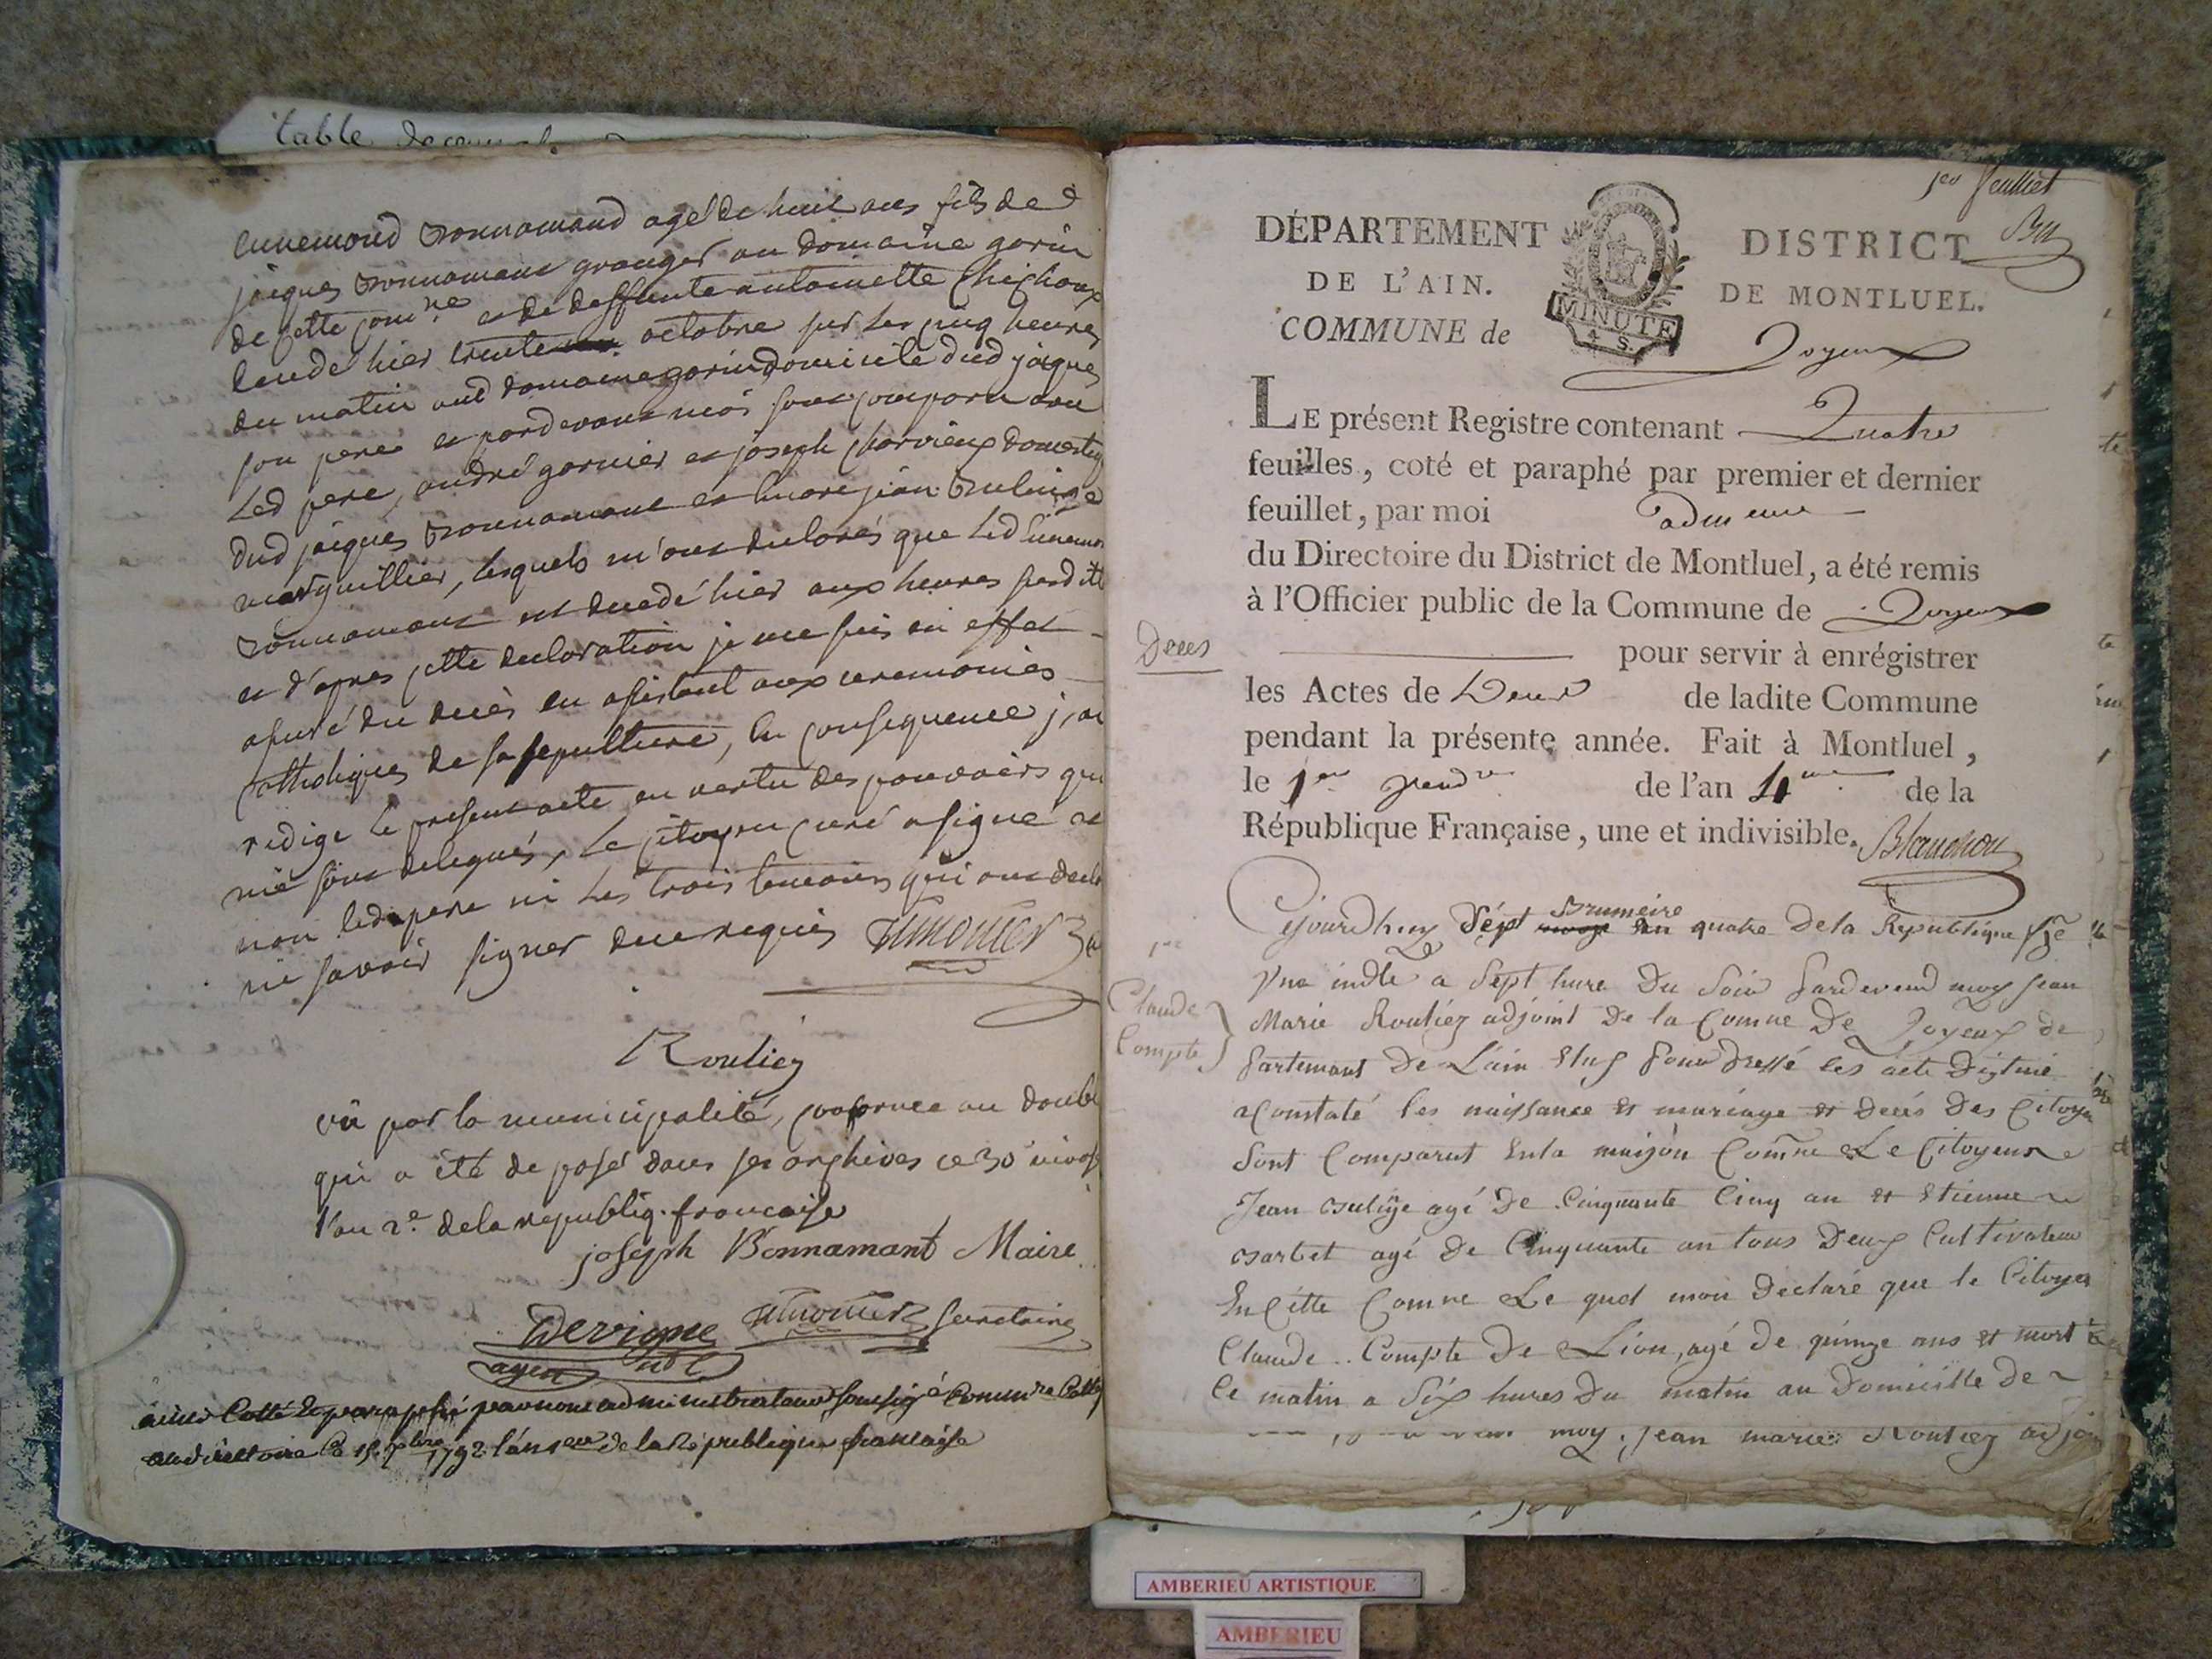 table
ennemond Bonnamand agé de huit ans fils de
jacques Bonnamant granger au domaine garin
de cette comne et de deffunte antoinette Chichoux
decedé hier trente octobre sur les cinq heures
du matin aud domaine garin domicile dud jacques
son pere et pardevant moi sont comparu
Led pere, andré garnier et joseph charvieux domestiq
dud jacques Bonnamant et jean
marguillier, lesquels m'ont declarés que led
Bonnamant est decedé hier aux heures susdite
et d'apres cette declaration je me suis en effet
asuré du decès en asistant aux ceremonies
catholiques de sa sepulture, en consequence j'ai
redigé le present acte en vertu des pouvoirs qui
me sont delegués, le citoyen curé a signé et
non led pere ni les trois temoins qui ont declaré
ne savoir signer de ce requis
Rouliez
vu par la municipalité, au double
qui a été deposé dans ses archives ce 30 nivose
l'an 2e. de la republiq. francaise
joseph Bonnamant Maire
secretaire
Devigne
agent
cotté et paraphé par nous administrateur soussigé
au directoire ce 15. 1792 l'an 1er de la République francaise
1er feuillet
DÉPARTEMENT
DE L'AIN.
COMMUNE de Joyeux
MINUTE
4 S.
DISTRICT
DE MONTLUEL.
LE présent Registre contenant Quatre
feuilles, coté et paraphé par premier et dernier
feuillet, par moi
du Directoire du District de Montluel, a été remis
à l'Officier public de la Commune de Joyeux
Deces
pour servir à enrégistrer
les Actes de Deces de ladite Commune
pendant la présente année. Fait à Montluel,
le 1er vendre de l'an 4me de la
République Française, une et indivisible. Blanchon
Brumeire
Cejourdhuy Sept an quatre De la Republique fse
Une indle a Sept hure Du Soir Pardevend moy jean
Claude
Compte
Marie Rouliez adjoint De la Comne De Joyeux de
partemant De Lain Elus pour dressé les acte
constaté les naissance et mariage et decés Des Citoyen
Sont Comparut En la maison Comne Le Citoyens
Jean agé De Cinquante Cinq an et Etienne
Barbet agé de Cinquante an tous Deux Cultivateur
En Cette Comne Le quel mon Declaré que le Citoyen
Claude Compte De Lion, agé de quinze ans et mort
Ce matin a Six hures Du matin au Domicille De
moy jean marie Rouliez adjoin
AMBERIEU ARTISTIQUE
AMBERIEU